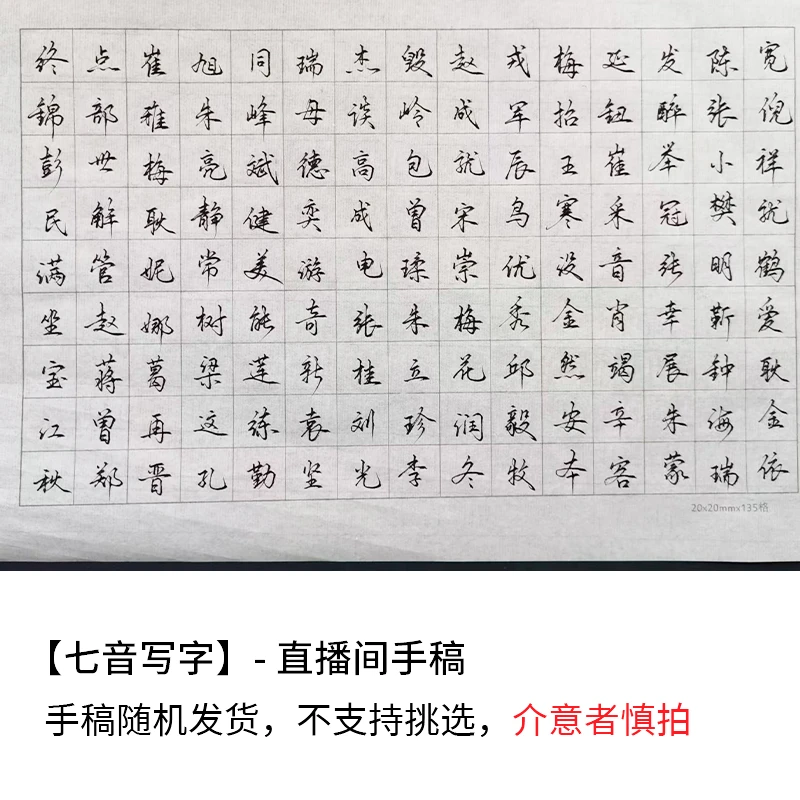 终点崔旭同瑞杰毁赵戎梅延发陈宽
锦部雅朱峰母谈岭成军招钮醉张倪
彭世梅亮斌德高包就辰王崔举小祥
民解耿静健奕成曾宋鸟寒采冠樊就
满管妮常美游电瑈崇优设音张明鹤
坐赵娜树能奇张朱梅秀金肖幸靳爱
宝蒋葛梁莲新桂立花邱然竭展钟耿
江曾再这练袁刘珍润毅安辛朱海金
秋郑晋孔勤坚光李冬牧本客蒙瑞依
20x20mmx135格
【七音写字】- 直播间手稿
手稿随机发货，不支持挑选，介意者慎拍